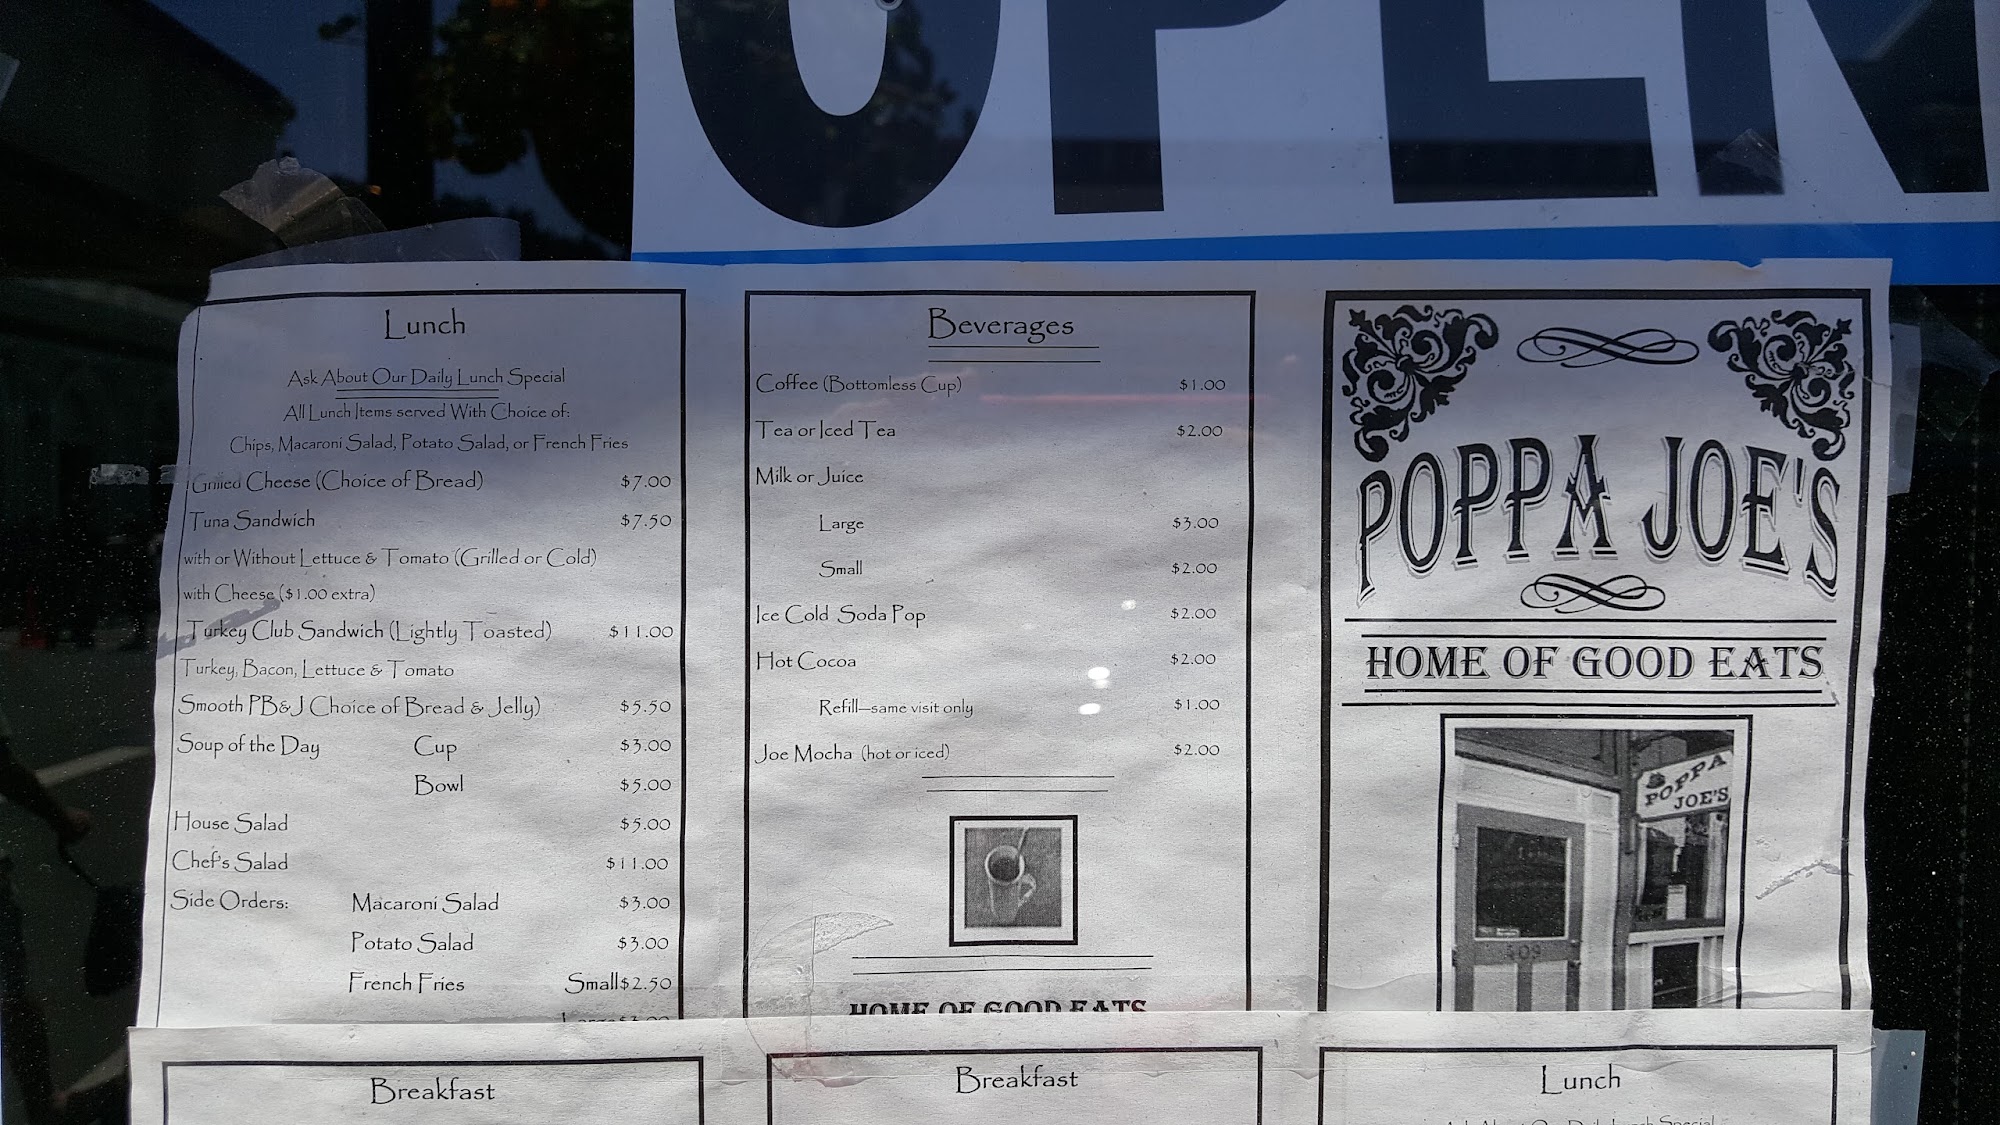 OPEN
Lunch
Ask About Our Daily Lunch Special
All Lunch Items served With Choice of:
Chips, Macaroni Salad, Potato Salad, or French Fries
Grilled Cheese (Choice of Bread) $7.00
Tuna Sandwich $7.50
with or Without Lettuce & Tomato (Grilled or Cold)
with Cheese ($1.00 extra)
Turkey Club Sandwich (Lightly Toasted) $11.00
Turkey, Bacon, Lettuce & Tomato
Smooth PB&J Choice of Bread & Jelly) $5.50
Soup of the Day Cup $3.00
Bowl $5.00
House Salad $5.00
Chef's Salad $11.00
Side Orders: Macaroni Salad $3.00
Potato Salad $3.00
French Fries Small $2.50
Large $3.00
Beverages
Coffee (Bottomless Cup) $1.00
Tea or Iced Tea $2.00
Milk or Juice
Large $3.00
Small $2.00
Ice Cold Soda Pop $2.00
Hot Cocoa $2.00
Refill—same visit only $1.00
Joe Mocha (hot or iced) $2.00
HOME OF GOOD EATS
POPPA JOE'S
HOME OF GOOD EATS
POPPA
JOE'S
209
Breakfast
Breakfast
Lunch
Ask About Our Daily Lunch Special